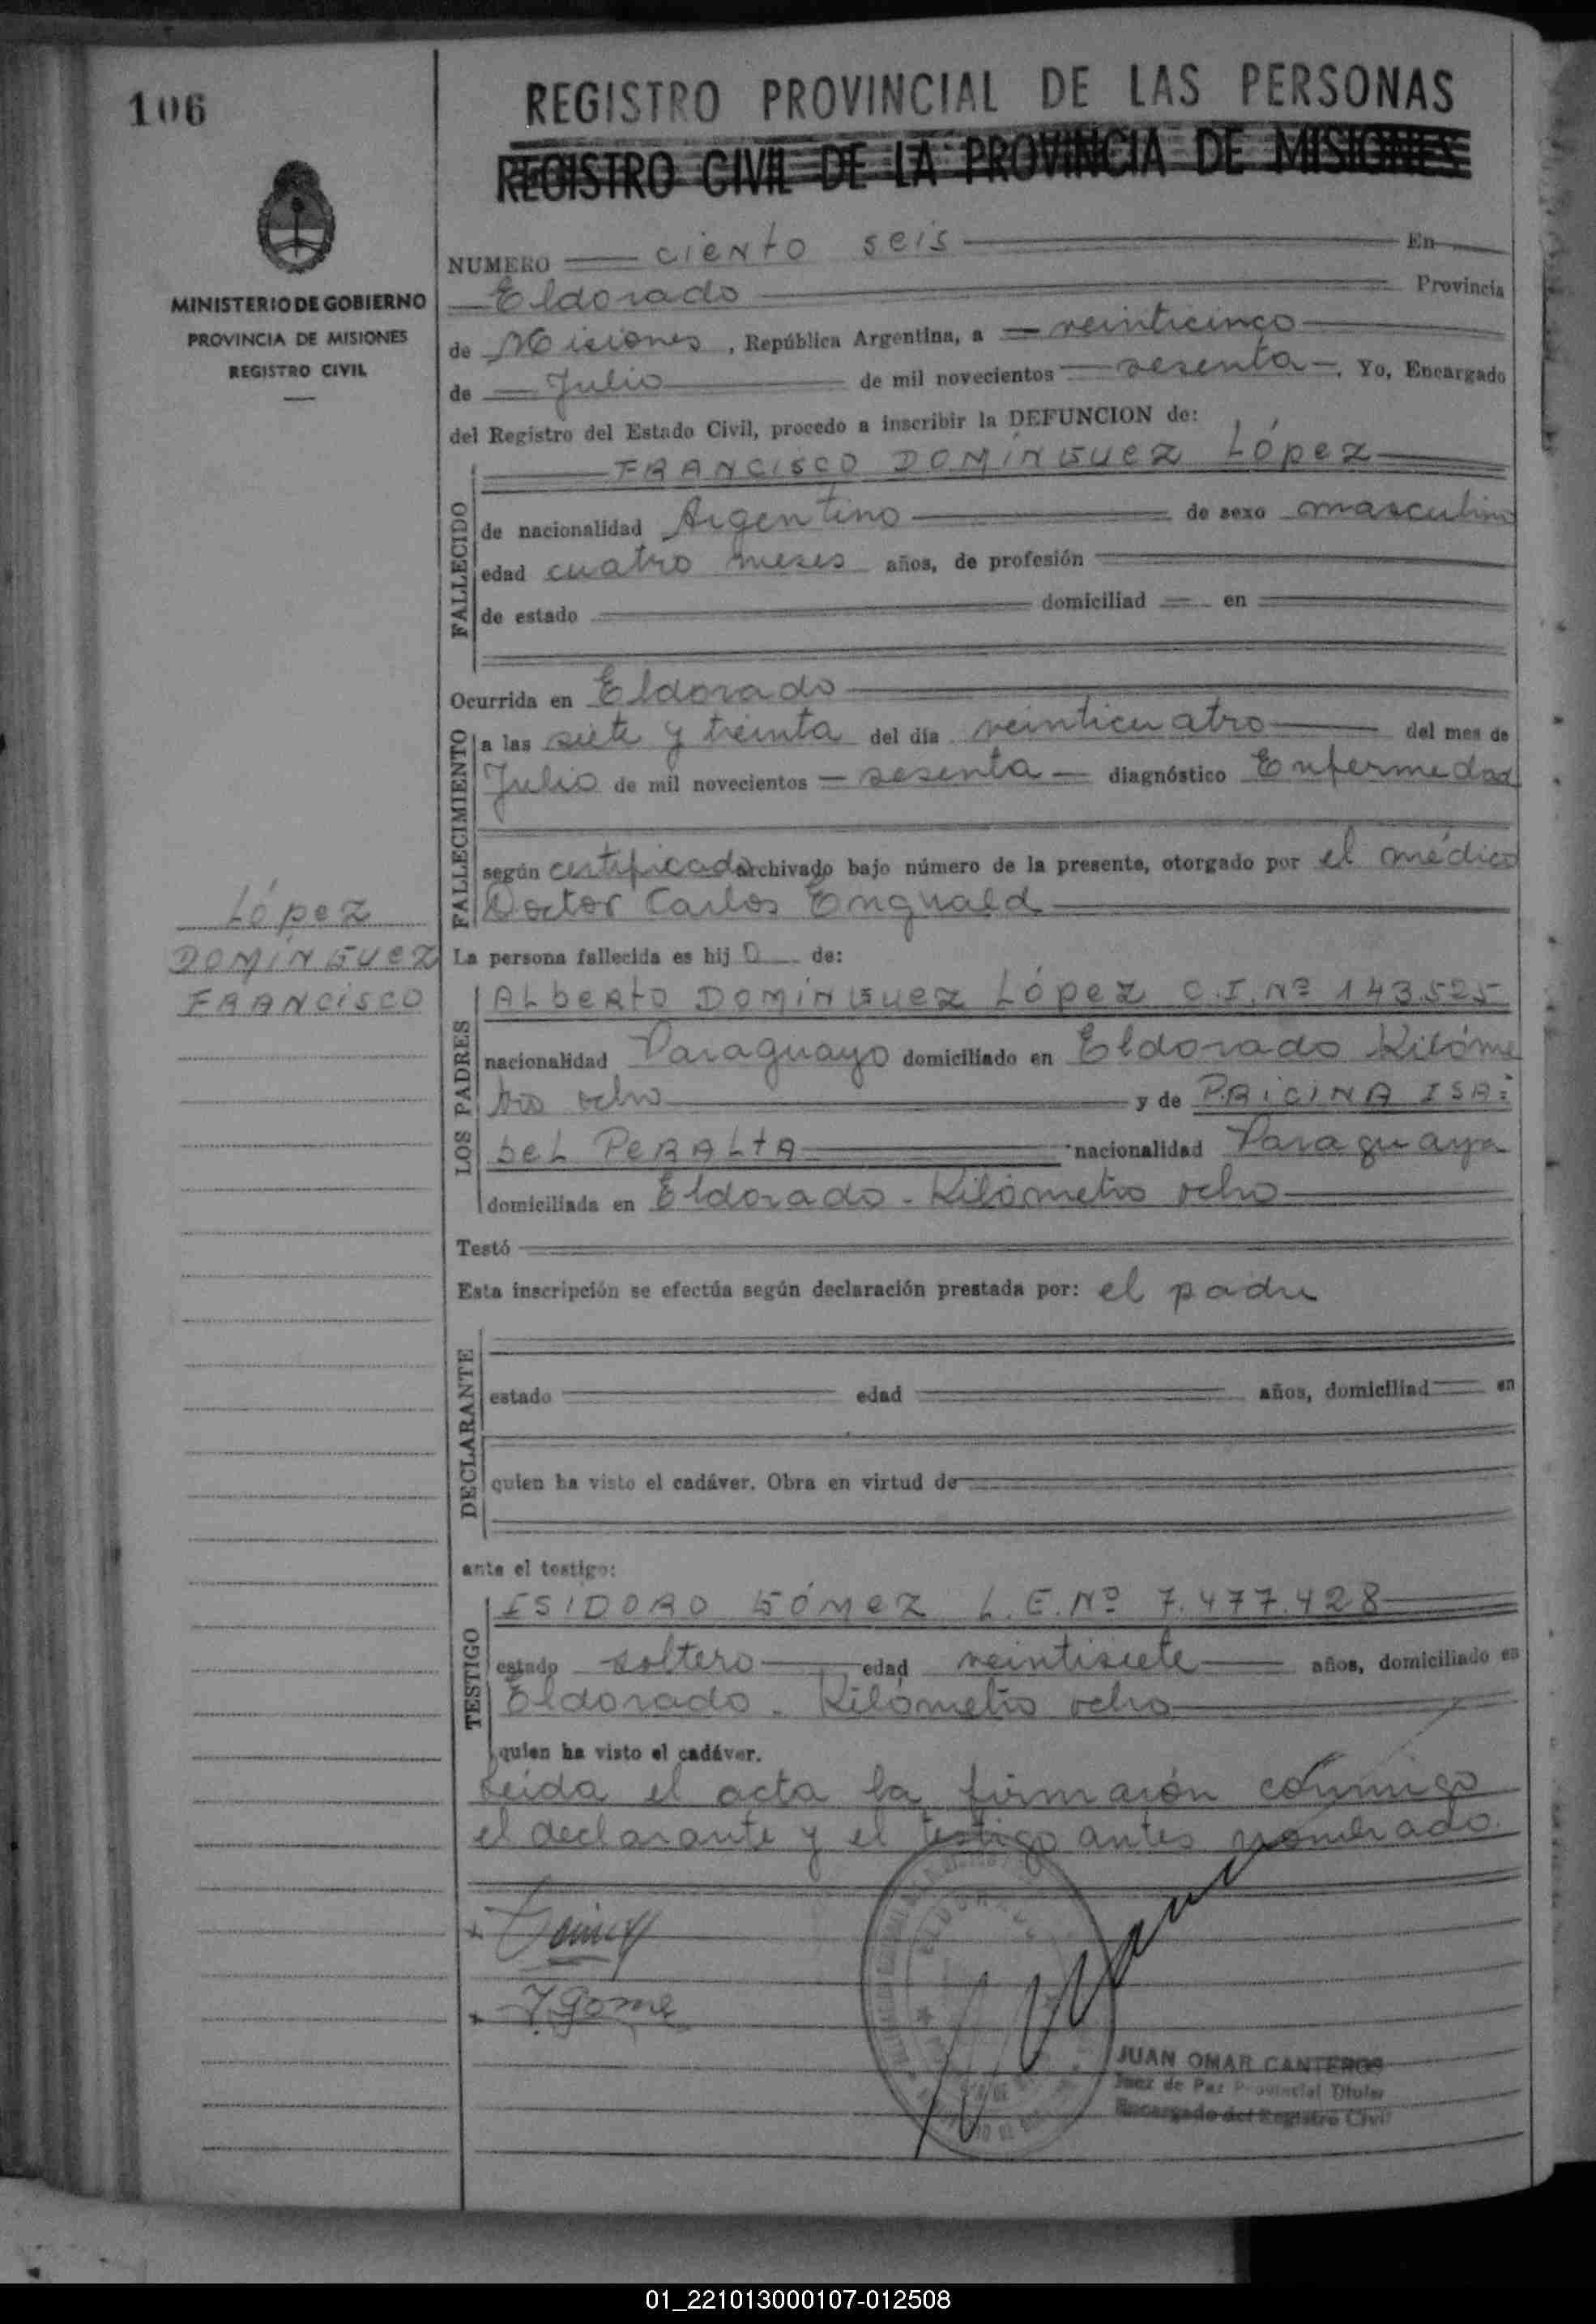 106
REGISTRO PROVINCIAL DE LAS PERSONAS
REGISTRO CIVIL DE LA PROVINCIA DE MISIONES
MINISTERIO DE GOBIERNO
PROVINCIA DE MISIONES
REGISTRO CIVIL
NUMERO ciento seis En
Eldorado Provincia
de Misiones, República Argentina, a veinticinco
de Julio de mil novecientos sesenta, Yo, Encargado
del Registro del Estado Civil, procedo a inscribir la DEFUNCION de:
FRANCISCO DOMÍNGUEZ LÓPEZ
FALLECIDO
de nacionalidad Argentino de sexo masculino
edad cuatro meses años, de profesión
de estado domiciliad en
Ocurrida en Eldorado
FALLECIMIENTO
a las siete y treinta del día veinticuatro del mes de
Julio de mil novecientos sesenta diagnóstico Enfermedad
según certificado archivado bajo número de la presente, otorgado por el médico
Doctor Carlos Enguald
LÓPEZ
DOMÍNGUEZ
FRANCISCO
La persona fallecida es hijo de:
LOS PADRES
ALBERTO DOMÍNGUEZ LÓPEZ C.I. Nº 143.525
nacionalidad Paraguayo domiciliado en Eldorado Kilóme
tro ocho y de PRICINA ISA=
BEL PERALTA nacionalidad Paraguaya
domiciliada en Eldorado - Kilómetro ocho
Testó
Esta inscripción se efectúa según declaración prestada por: el padre
DECLARANTE
estado edad años, domiciliad en
quien ha visto el cadáver. Obra en virtud de
ante el testigo:
TESTIGO
ISIDORO GÓMEZ L.E. Nº 7.477.428
estado soltero edad veintisiete años, domiciliado en
Eldorado - Kilómetro ocho
quien ha visto el cadáver.
Leída el acta la firmarón conmigo
el declarante y el testigo antes nombrado.
I. Gome
ELDORADO
JUAN OMAR CANTEROS
Juez de Paz Provincial Titular
Encargado del Registro Civil
01_221013000107-012508